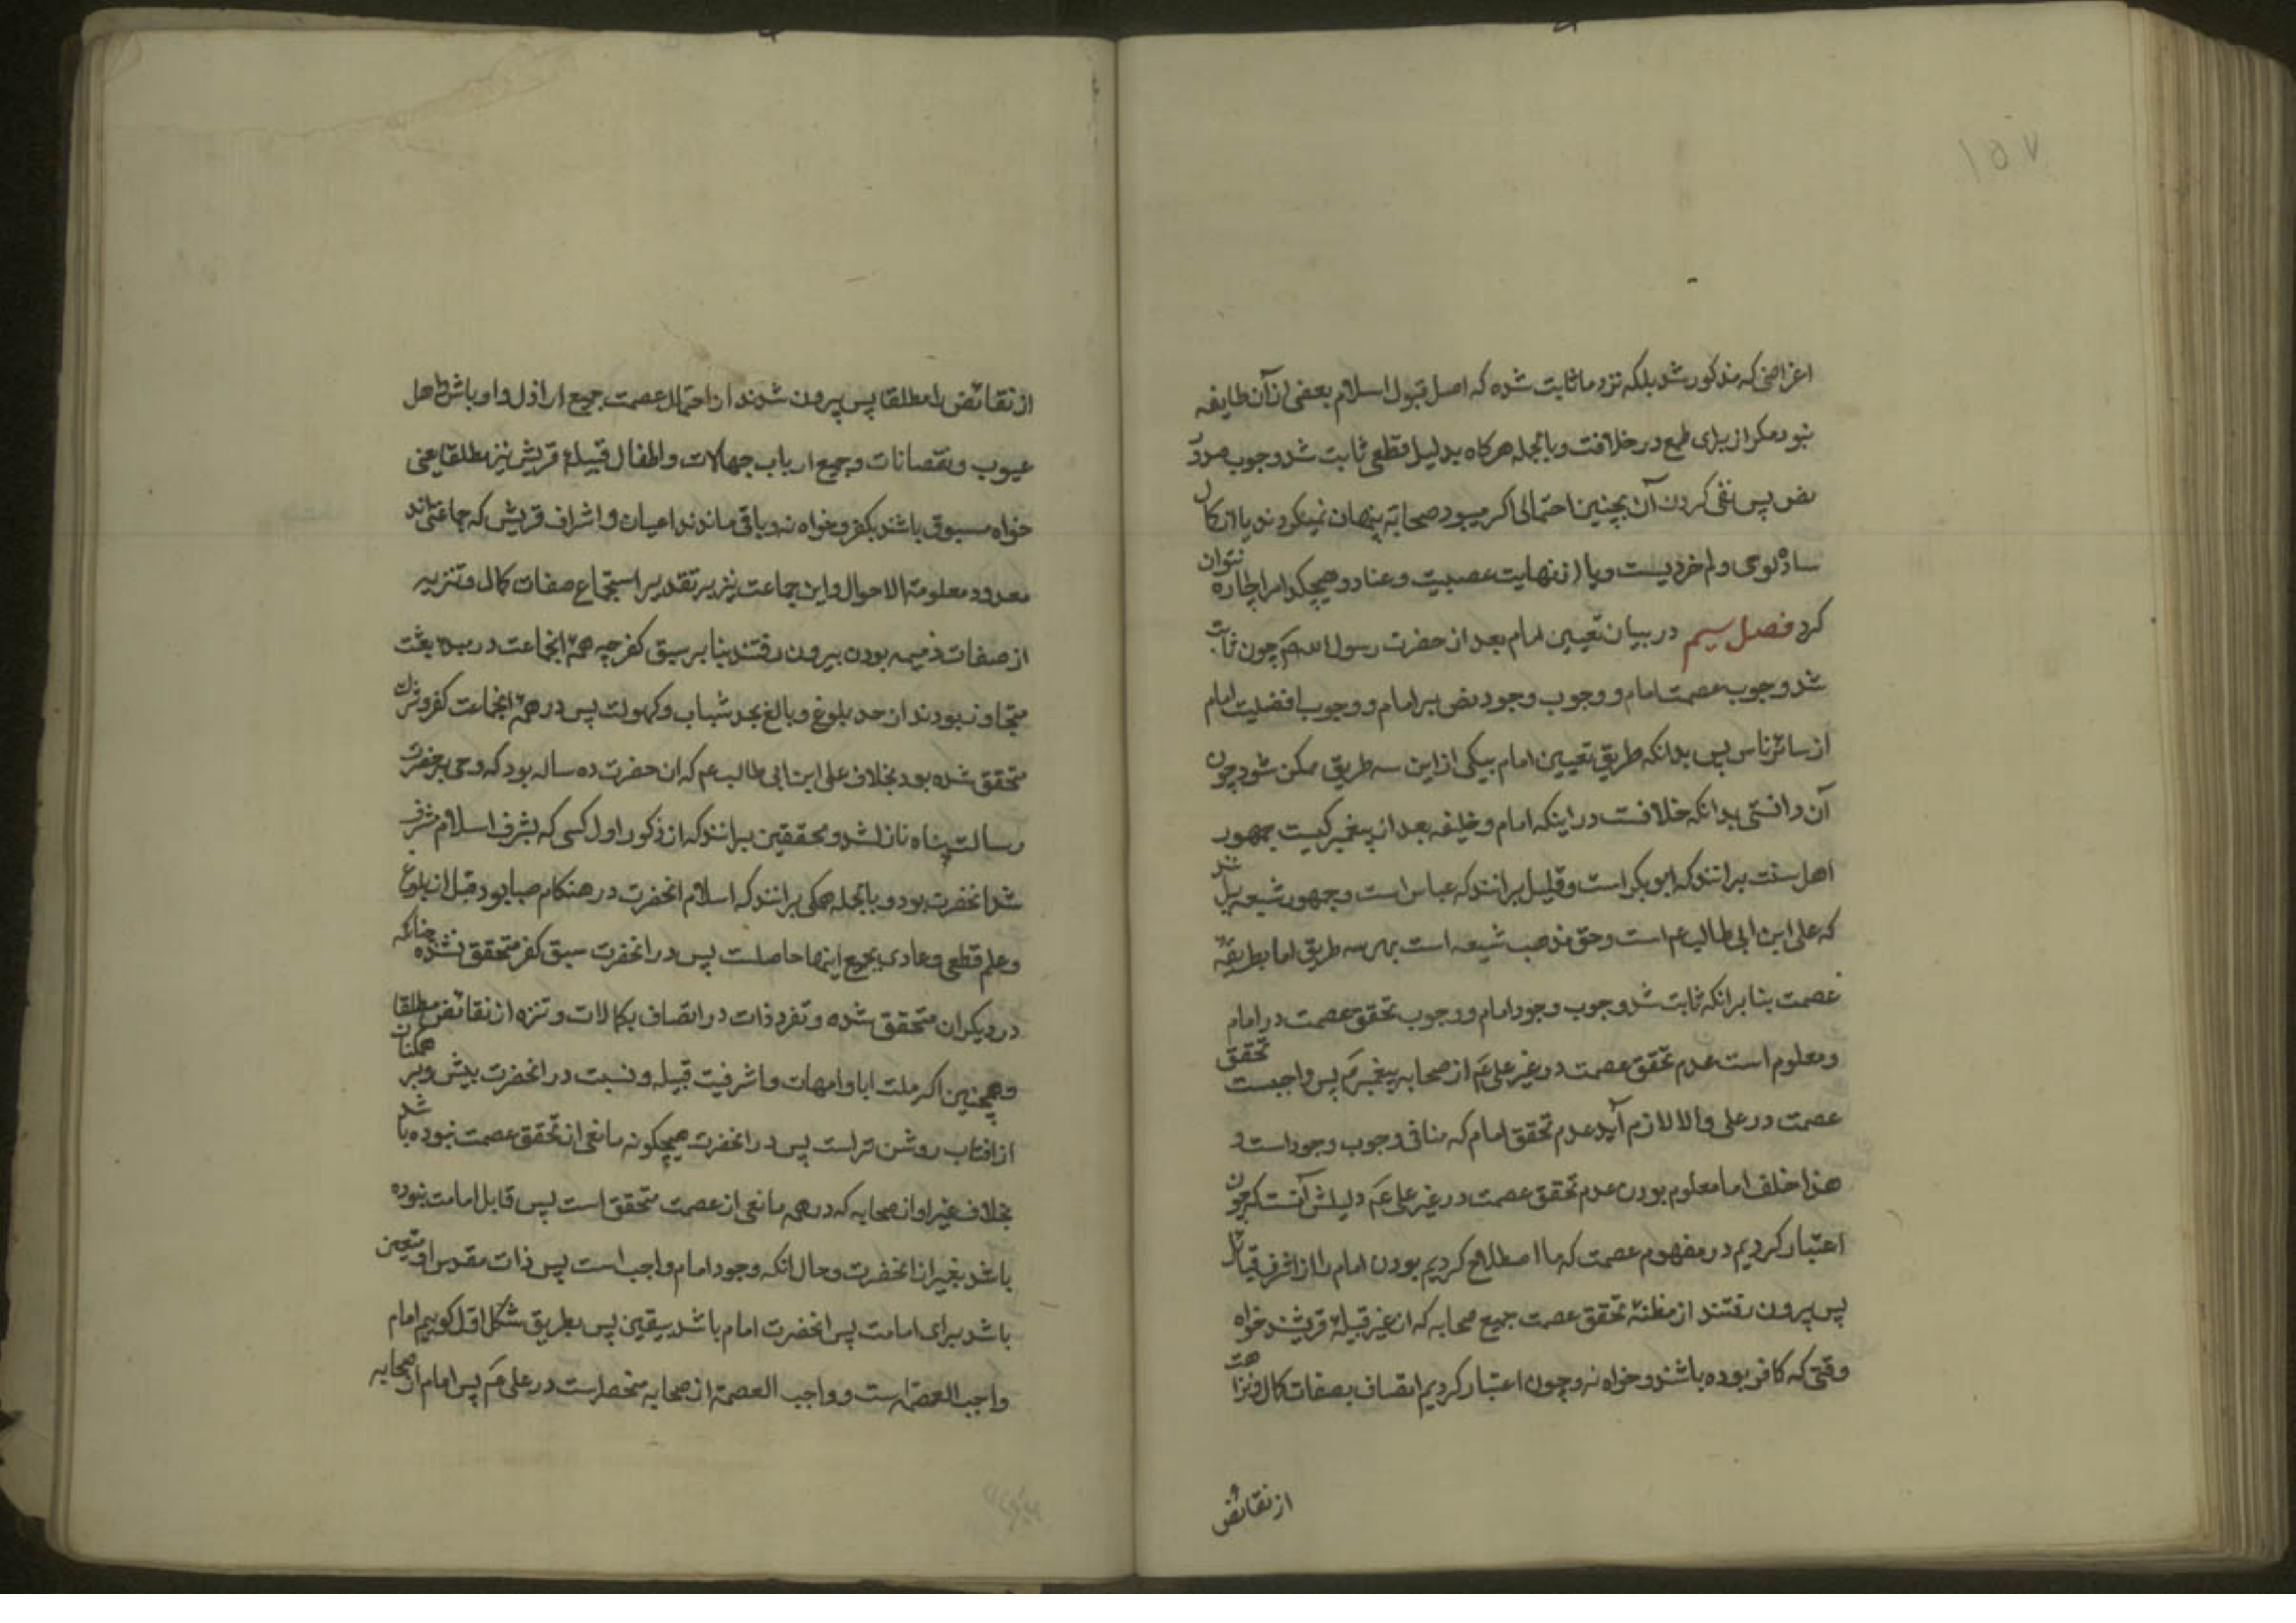 ۱۵۷
اغراضی که مذکور شد بلکه نزد ما ثابت شده که اصل قبول اسلام بعضی از آن طایفه
نبود مکر از برای طمع در خلافت و بالجمله هرکاه بدلیل قطعی ثابت شد وجوب صدور
نص پس نفی کردن آن بچنین احتمالی اکر میبود صحابه پنهان نمیکردند یا از کمال
ساده‌لوحی و کم خردیست و یا از نهایت عصبیت و عناد و هیچکدام را چاره نتوان
کرد فصل سیم در بیان تعیین امام بعد از حضرت رسول الله ص چون ثابت
شد وجوب عصمت امام و وجوب وجود نص بر امام و وجوب افضلیت امام
از سائر ناس پس بدانکه طریق تعیین امام بیکی از این سه طریق ممکن شود چون
آن دانستی بدانکه خلافست در اینکه امام و خلیفه بعد از پیغمبر کیست جمهور
اهل سنت برانند که ابوبکر است و قلیل برانند که عباس است و جمهور شیعه برانند
که علی ابن ابی طالب ع است و حق مذهب شیعه است بهر سه طریق اما بطریقهٔ
عصمت بنا برانکه ثابت شد وجوب وجود امام و وجوب تحقق عصمت در امام
و معلوم است عدم تحقق عصمت در غیر علی ع از صحابه پیغمبر ص پس واجبست تحقق
عصمت در علی والا لازم آید عدم تحقق امام که منافی وجوب وجود است و
هذا خلف اما معلوم بودن عدم تحقق عصمت در غیر علی ع دلیلش آنست که چون
اعتبار کردیم در مفهوم عصمت که ما اصطلاح کردیم بودن امام را از اشرف قبائل
پس بیرون رفتند از مظنهٔ تحقق عصمت جمیع صحابه که از غیر قبیلهٔ قریشند خواه
وقتی که کافر بوده باشند و خواه نه و چون اعتبار کردیم اتصاف بصفات کمال و نزاهت
از نقائض
از نقائض را مطلقا پس بیرون شدند از احتمال عصمت جمیع اراذل و اوباش و اهل
عیوب و نقصانات و جمیع ارباب جهالات و اطفال قبیلهٔ قریش نیز مطلقا یعنی
خواه مسبوق باشند بکفر و خواه نه و باقی ماندند اعیان و اشراف قریش که جماعتی‌اند
معدود معلومة الاحوال و این جماعت نیز بر تقدیر استجماع صفات کمال و تنزیه
از صفات ذمیمه بودن بیرون رفتند بنا بر سبق کفر چه همهٔ انجماعت در مبدء بعثت
متجاوز بودند از حد بلوغ و بالغ بحد شباب و کهولت پس در همهٔ انجماعت کفر و شرک
متحقق شده بود بخلاف علی ابن ابی طالب ع که ان حضرت ده ساله بود که وحی بر حضرت
رسالت پناه نازلشد و محققین برانند که از ذکور اول کسی که بشرف اسلام مشرف
شد انحضرت بود و بالجمله همکی برانند که اسلام انحضرت در هنکام صبا بود قبل از بلوغ
و علم قطعی و عادی بجمیع اینها حاصلست پس در انحضرت سبق کفر متحقق نشده چنانکه
در دیکران متحقق شده و تفرد ذات در اتصاف بکمالات و تنزه از نقائض مطلقا
و همچنین اکرملت ابا و امهات و اشرفیت قبیله و نسبت در انحضرت بیش و بر همکنان
از افتاب روشن تر است پس در انحضرت هیچکونه مانعی از تحقق عصمت نبوده باشد
بخلاف غیر او از صحابه که در همه مانعی از عصمت متحقق است پس قابل امامت نبوده
باشد بغیر از انحضرت و حال انکه وجود امام واجب است پس ذات مقدس او متعین
باشد برای امامت پس انحضرت امام باشد بیقین پس بطریق شکل اول کوییم امام
واجب العصمة است و واجب العصمة از صحابه منحصر است در علی ع پس امام از صحابه